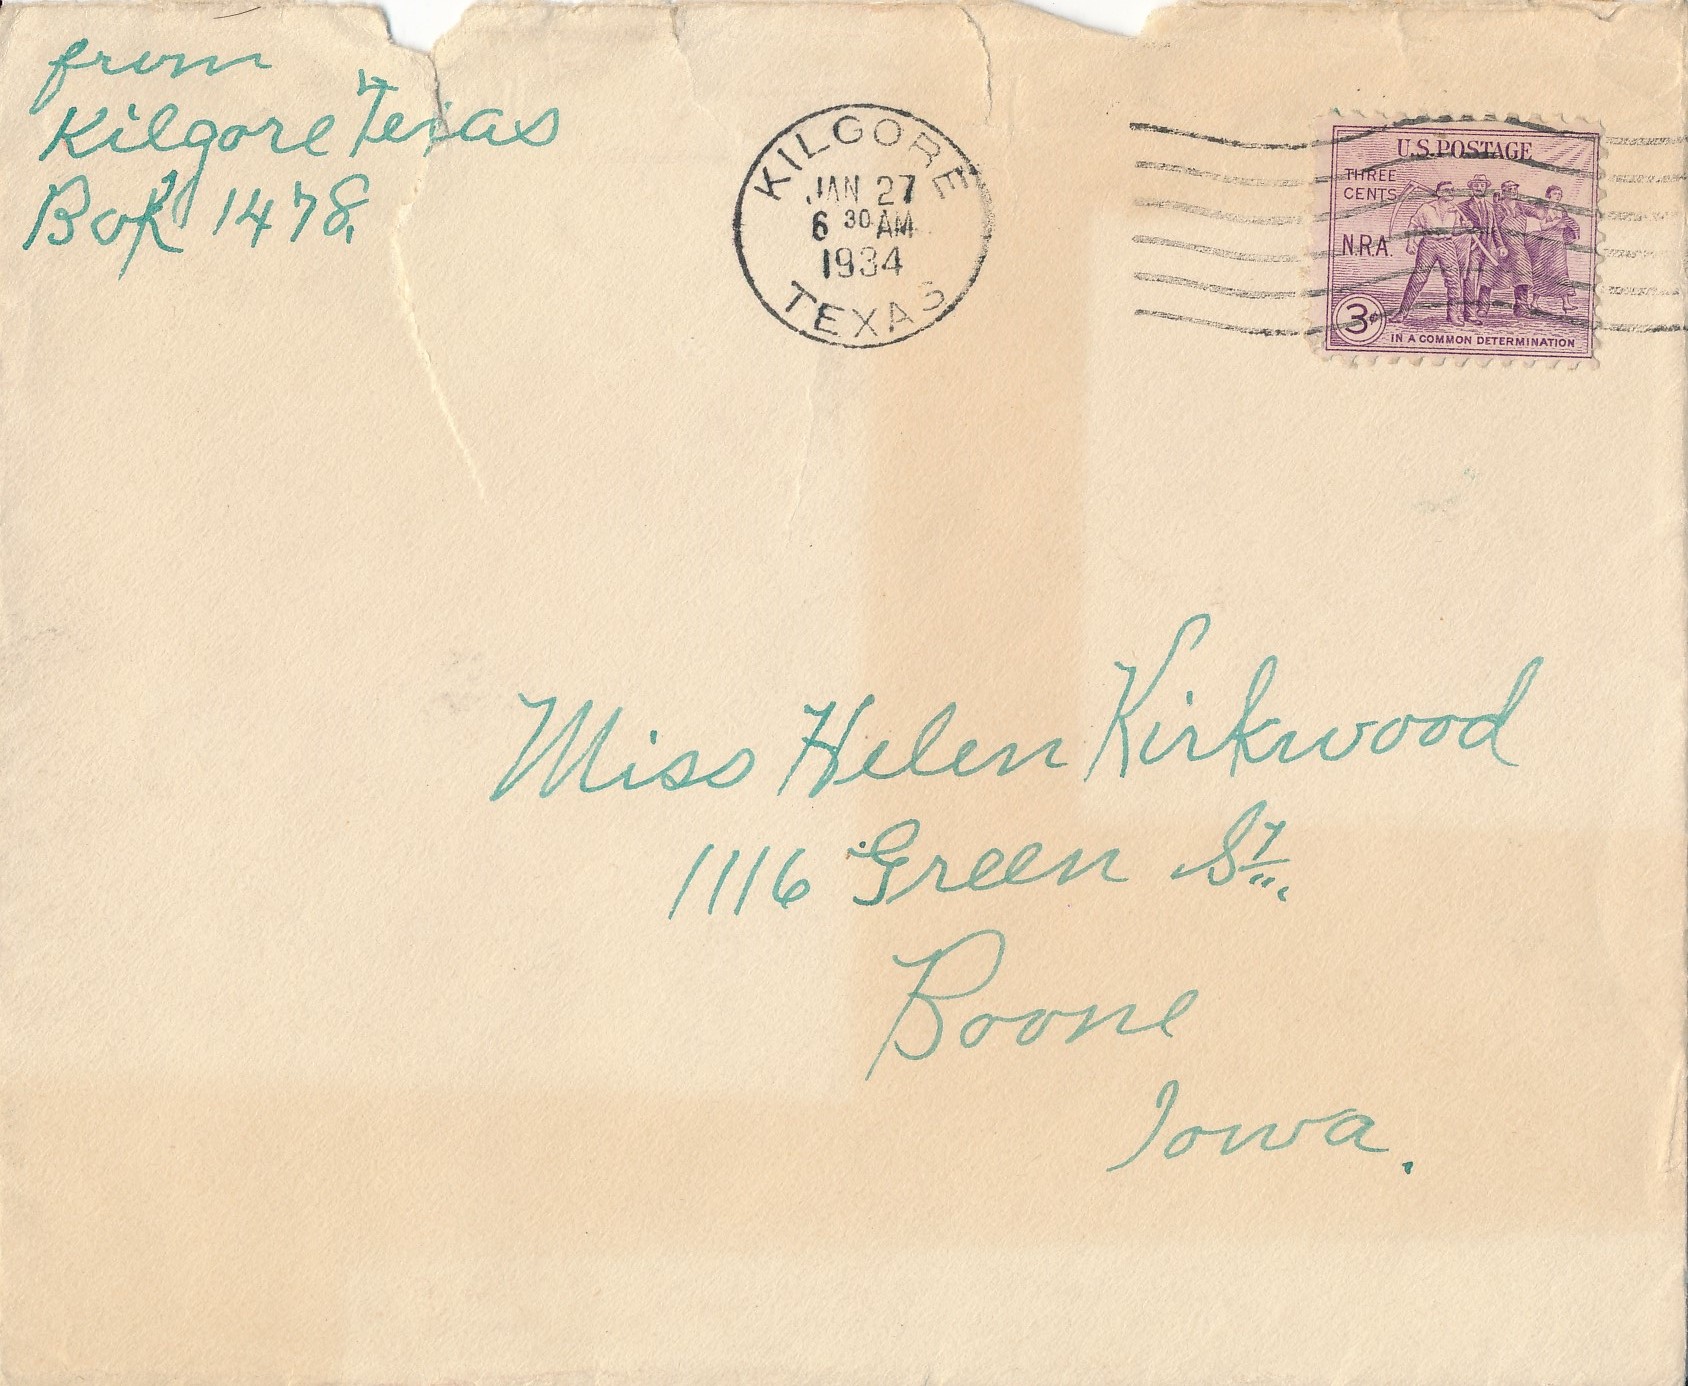 from
Kilgore Texas
Box 1478.
KILGORE
JAN 27
6 30 AM
1934
TEXAS
U.S. POSTAGE
THREE
CENTS
N.R.A.
3¢
IN A COMMON DETERMINATION
Miss Helen Kirkwood
1116 Green St.
Boone
Iowa.